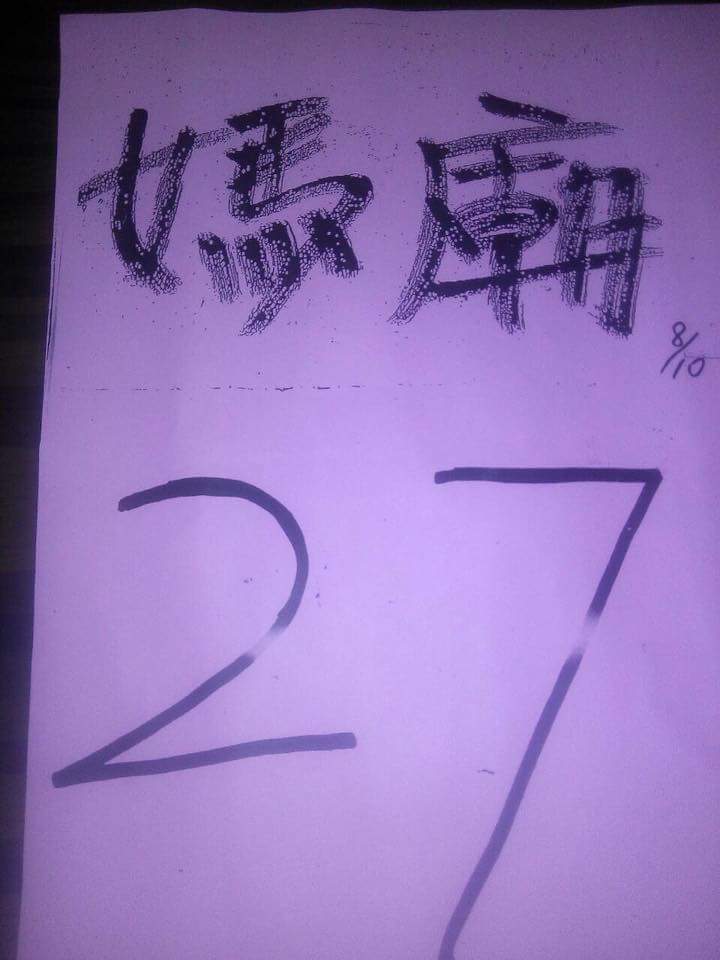 媽廟
8/10
27